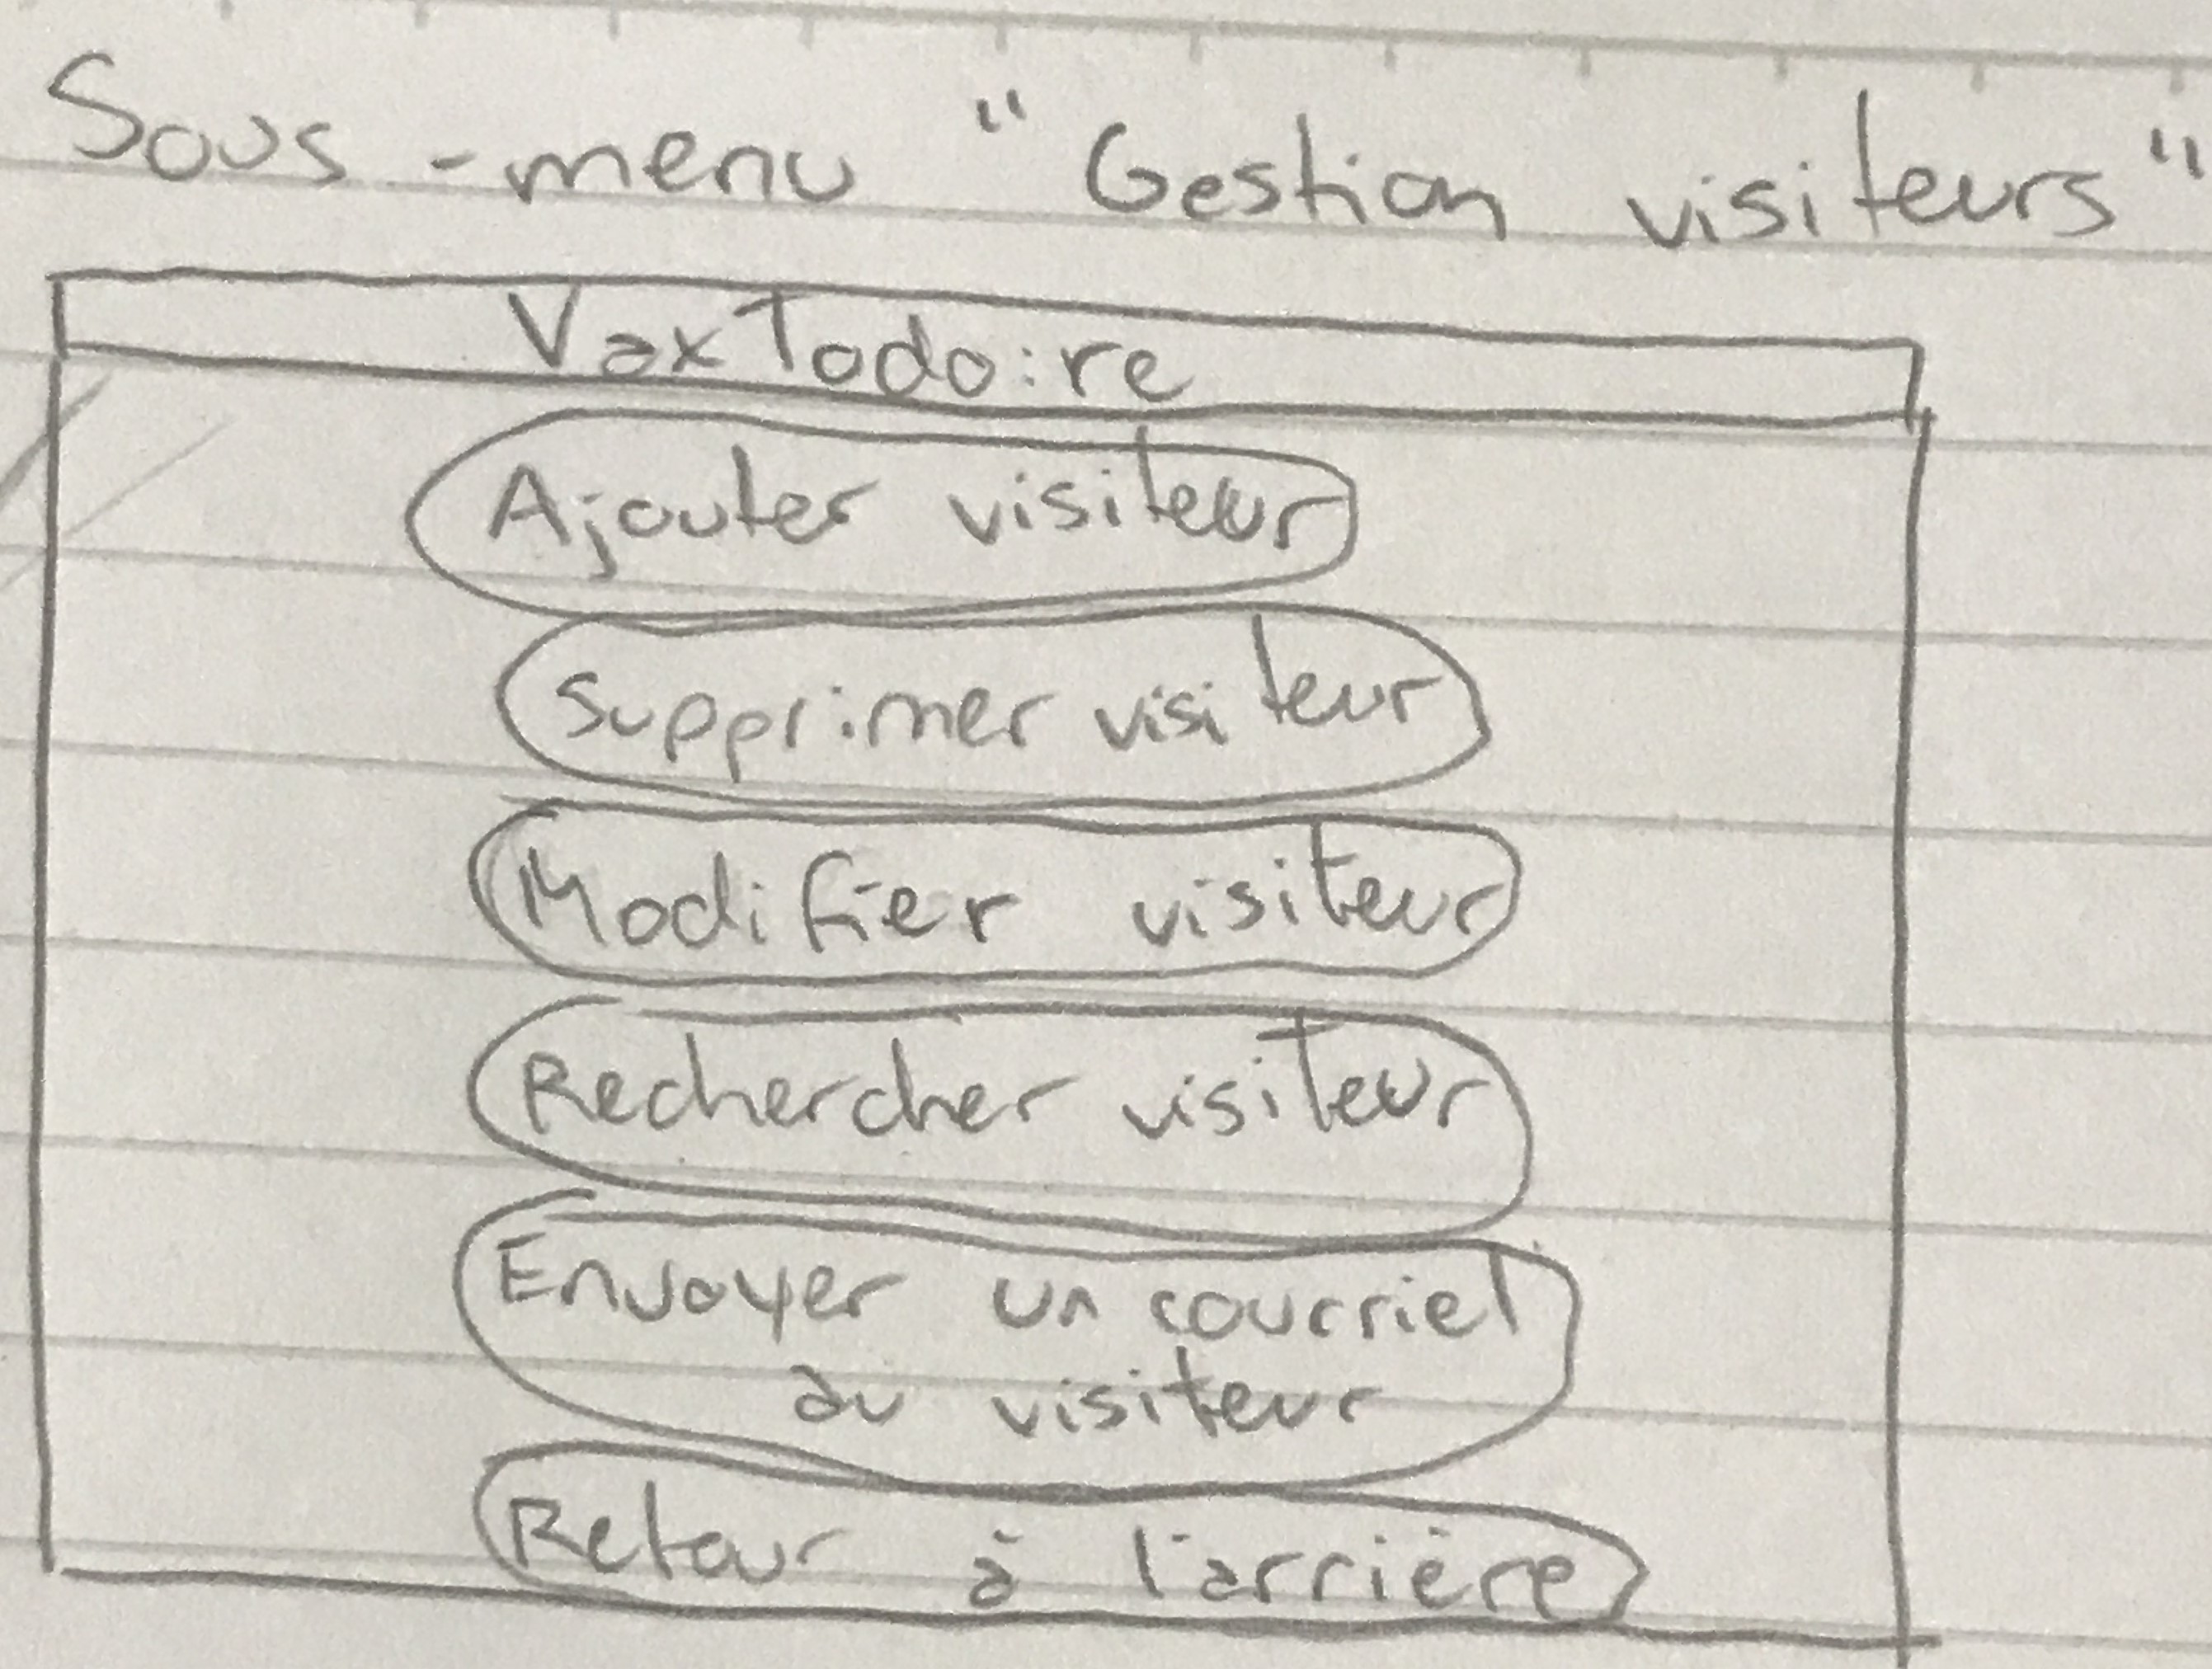 Sous-menu "Gestion visiteurs"
VaxTodoire
Ajouter visiteur
Supprimer visiteur
Modifier visiteur
Rechercher visiteur
Envoyer un courriel
au visiteur
Retour à l'arrière